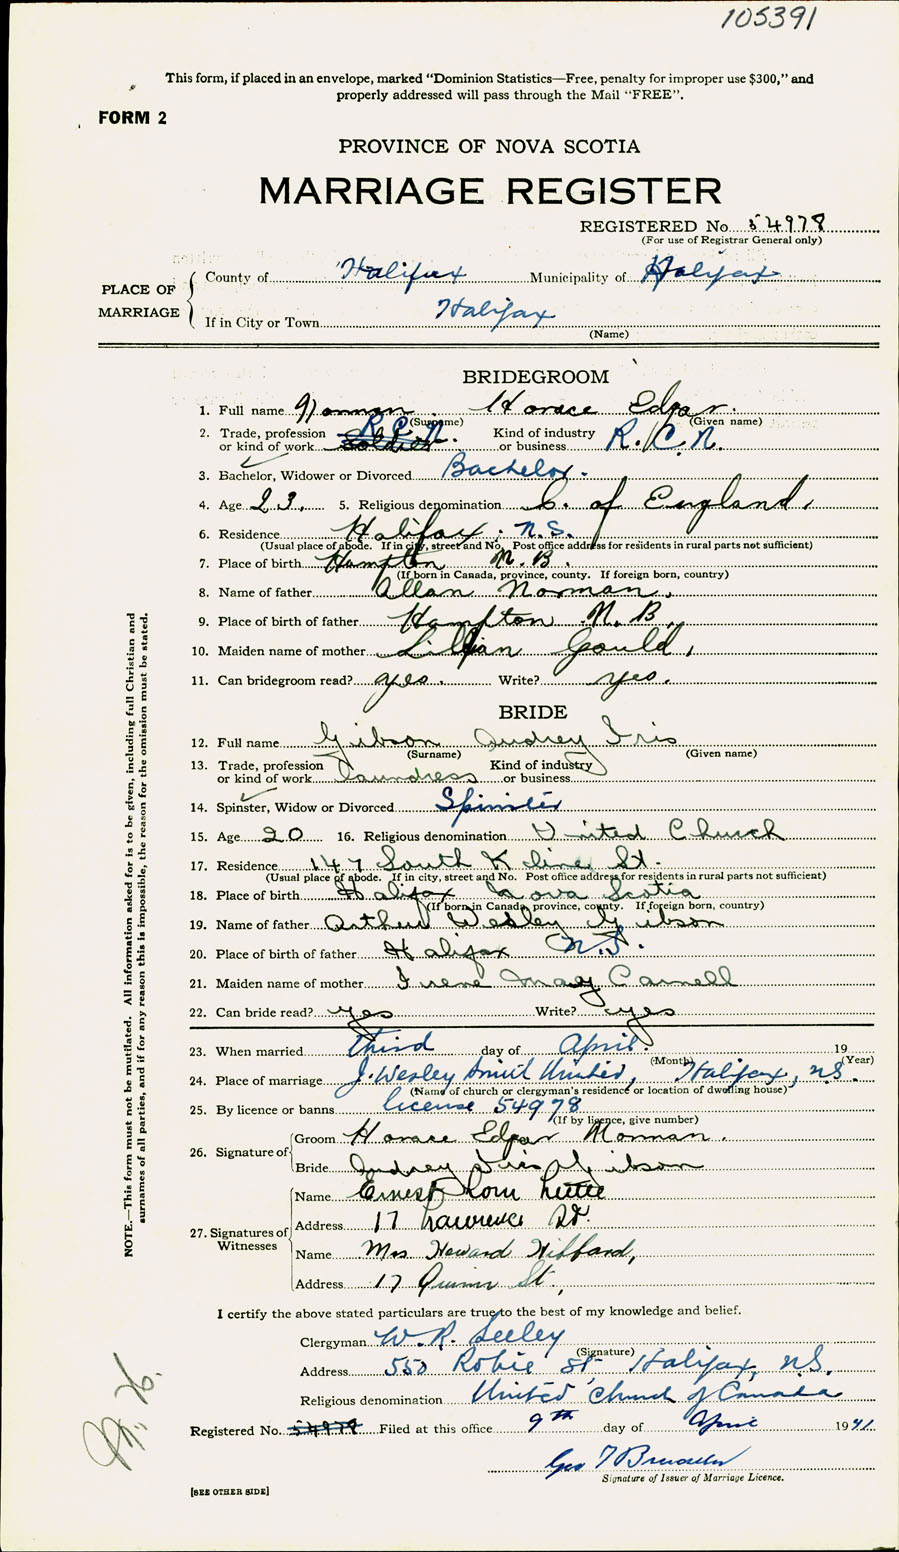 105391
This form, if placed in an envelope, marked “Dominion Statistics—Free, penalty for improper use $300,” and
properly addressed will pass through the Mail “FREE”.
FORM 2
PROVINCE OF NOVA SCOTIA
MARRIAGE REGISTER
REGISTERED No 54978
(For use of Registrar General only)
PLACE OF MARRIAGE
County of Halifax Municipality of Halifax
If in City or Town Halifax
(Name)
BRIDEGROOM
1. Full name Norman Horace Edgar.
(Surname) (Given name)
2. Trade, profession or kind of work Soldier R.C.N. Kind of industry or business R.C.N.
3. Bachelor, Widower or Divorced Bachelor.
4. Age 23. 5. Religious denomination C. of England.
6. Residence Halifax, N.S.
(Usual place of abode. If in city, street and No. Post office address for residents in rural parts not sufficient)
7. Place of birth Hampton N.B.
(If born in Canada, province, county. If foreign born, country)
8. Name of father Allan Norman.
9. Place of birth of father Hampton N.B.
10. Maiden name of mother Lillian Gould,
11. Can bridegroom read? yes. Write? yes.
BRIDE
12. Full name Gibson Audrey Iris
(Surname) (Given name)
13. Trade, profession or kind of work Laundress Kind of industry or business
14. Spinster, Widow or Divorced Spinster
15. Age 20 16. Religious denomination United Church
17. Residence 147 South Kline St.
(Usual place of abode. If in city, street and No. Post office address for residents in rural parts not sufficient)
18. Place of birth Halifax Nova Scotia
(If born in Canada, province, county. If foreign born, country)
19. Name of father Arthur Wesley Gibson
20. Place of birth of father Halifax N.S.
21. Maiden name of mother Irene May Carnell
22. Can bride read? yes Write? yes
23. When married third day of April. 19
(Month) (Year)
24. Place of marriage J. Wesley Smith United, Halifax, N.S.
(Name of church or clergyman's residence or location of dwelling house)
25. By licence or banns license 54978
(If by licence, give number)
26. Signature of
Groom Horace Edgar Norman.
Bride Audrey Iris Gibson
27. Signatures of Witnesses
Name Ernest
Address 17 Lawrence St.
Name Mrs Howard Hibbard,
Address 17 St.,
I certify the above stated particulars are true to the best of my knowledge and belief.
Clergyman W. R. Seeley
(Signature)
Address 550 Robie St Halifax, N.S.
Religious denomination United Church of Canada
Registered No. 54978 Filed at this office 9th day of April 1941
Geo
Signature of Issuer of Marriage Licence.
[SEE OTHER SIDE]
NOTE.—This form must not be mutilated. All information asked for is to be given, including full Christian and
surnames of all parties, and if for any reason this is impossible, the reason for the omission must be stated.